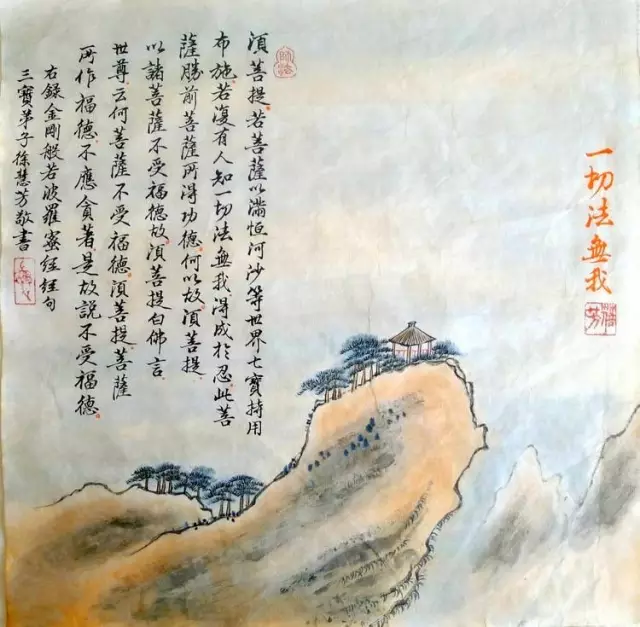 一切法無我
須菩提若菩薩以滿恒河沙等世界七寶持用
布施若復有人知一切法無我得成於忍此菩
薩勝前菩薩所得功德何以故須菩提
以諸菩薩不受福德故須菩提白佛言
世尊云何菩薩不受福德須菩提菩薩
所作福德不應貪著是故說不受福德
右錄金剛般若波羅蜜經經句
三寶弟子徐慧芳敬書